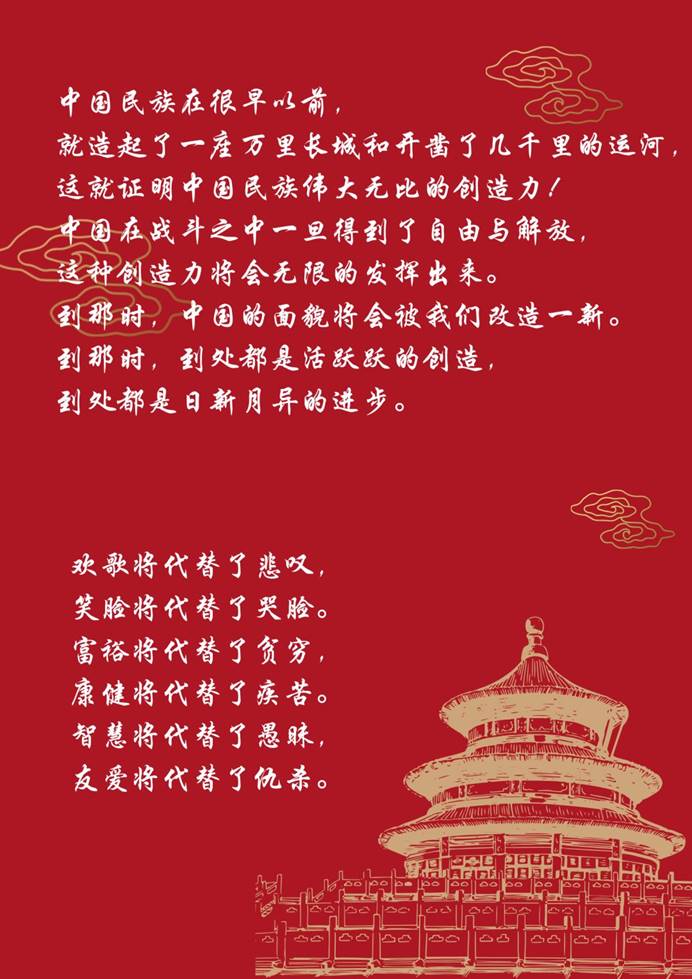 中国民族在很早以前，
就造起了一座万里长城和开凿了几千里的运河，
这就证明中国民族伟大无比的创造力！
中国在战斗之中一旦得到了自由与解放，
这种创造力将会无限的发挥出来。
到那时，中国的面貌将会被我们改造一新。
到那时，到处都是活跃跃的创造，
到处都是日新月异的进步。
欢歌将代替了悲叹，
笑脸将代替了哭脸。
富裕将代替了贫穷，
康健将代替了疾苦。
智慧将代替了愚昧，
友爱将代替了仇杀。